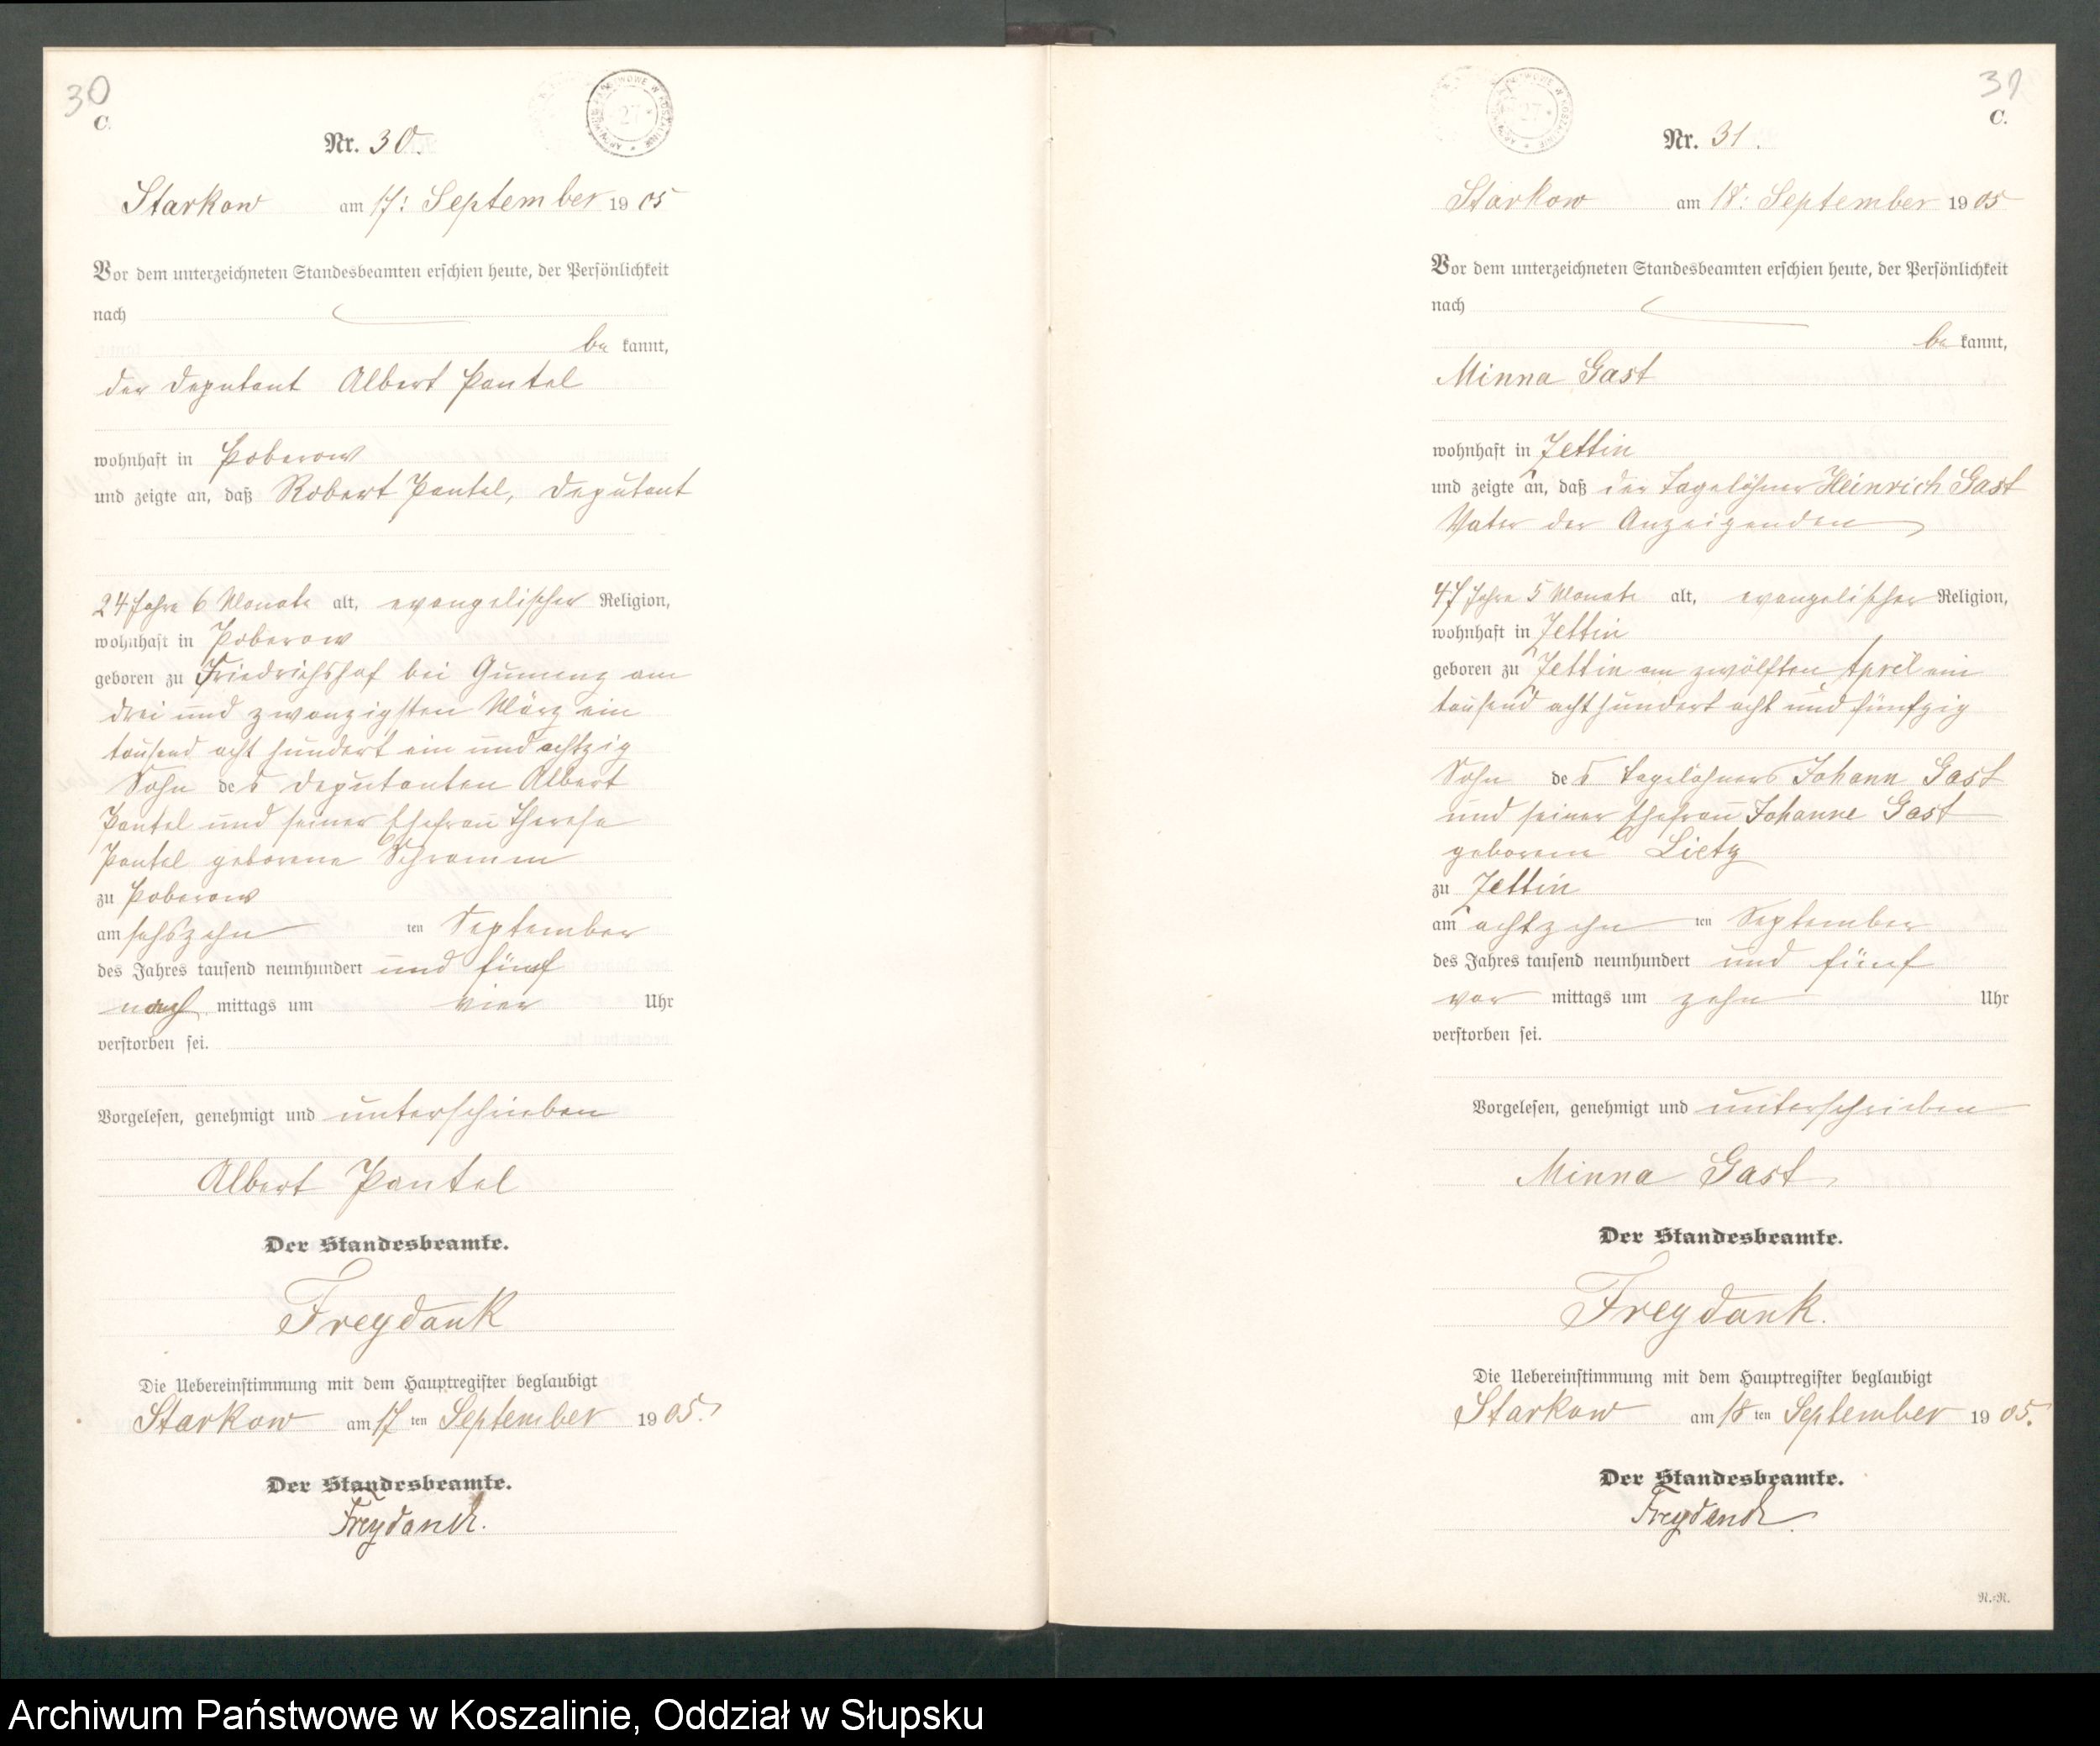 30
C.
Nr. 30.
Starkow am 17: September 1905
Vor dem unterzeichneten Standesbeamten erschien heute, der Persönlichkeit
nach
be kannt,
der Deputant Albert Pantel
wohnhaft in Poberow
und zeigte an, daß Robert Pantel, Deputant
24 Jahre 6 Monate alt, evangelischer Religion,
wohnhaft in Poberow
geboren zu Friedrichshof bei Gumenz am
drei und zwanzigsten März ein
tausend acht hundert ein und achtzig
Sohn des Deputanten Albert
Pantel und seiner Ehefrau Therese
Pantel geborene Schramm
zu Poberow
am sechszehn ten September
des Jahres tausend neunhundert und fünf
nach mittags um vier Uhr
verstorben sei.
Vorgelesen, genehmigt und unterschrieben
Albert Pantel
Der Standesbeamte.
Freydank
Die Uebereinstimmung mit dem Hauptregister beglaubigt
Starkow am 17 ten September 1905.
Der Standesbeamte.
Freydank.
31
C.
Nr. 31.
Starkow am 18: September 1905
Vor dem unterzeichneten Standesbeamten erschien heute, der Persönlichkeit
nach
be kannt,
Minna Gast
wohnhaft in Zettin
und zeigte an, daß der Tagelöhner Heinrich Gast
Vater der Anzeigenden
47 Jahre 5 Monate alt, evangelischer Religion,
wohnhaft in Zettin
geboren zu Zettin am zwölften April ein
tausend acht hundert acht und fünfzig
Sohn des Tagelöhners Johann Gast
und seiner Ehefrau Johanne Gast
geborene Lietz
zu Zettin
am achtzehn ten September
des Jahres tausend neunhundert und fünf
vor mittags um zehn Uhr
verstorben sei.
Vorgelesen, genehmigt und unterschrieben
Minna Gast
Der Standesbeamte.
Freydank.
Die Uebereinstimmung mit dem Hauptregister beglaubigt
Starkow am 18 ten September 1905.
Der Standesbeamte.
Freydank.
N.-N.
Archiwum Państwowe w Koszalinie, Oddział w Słupsku